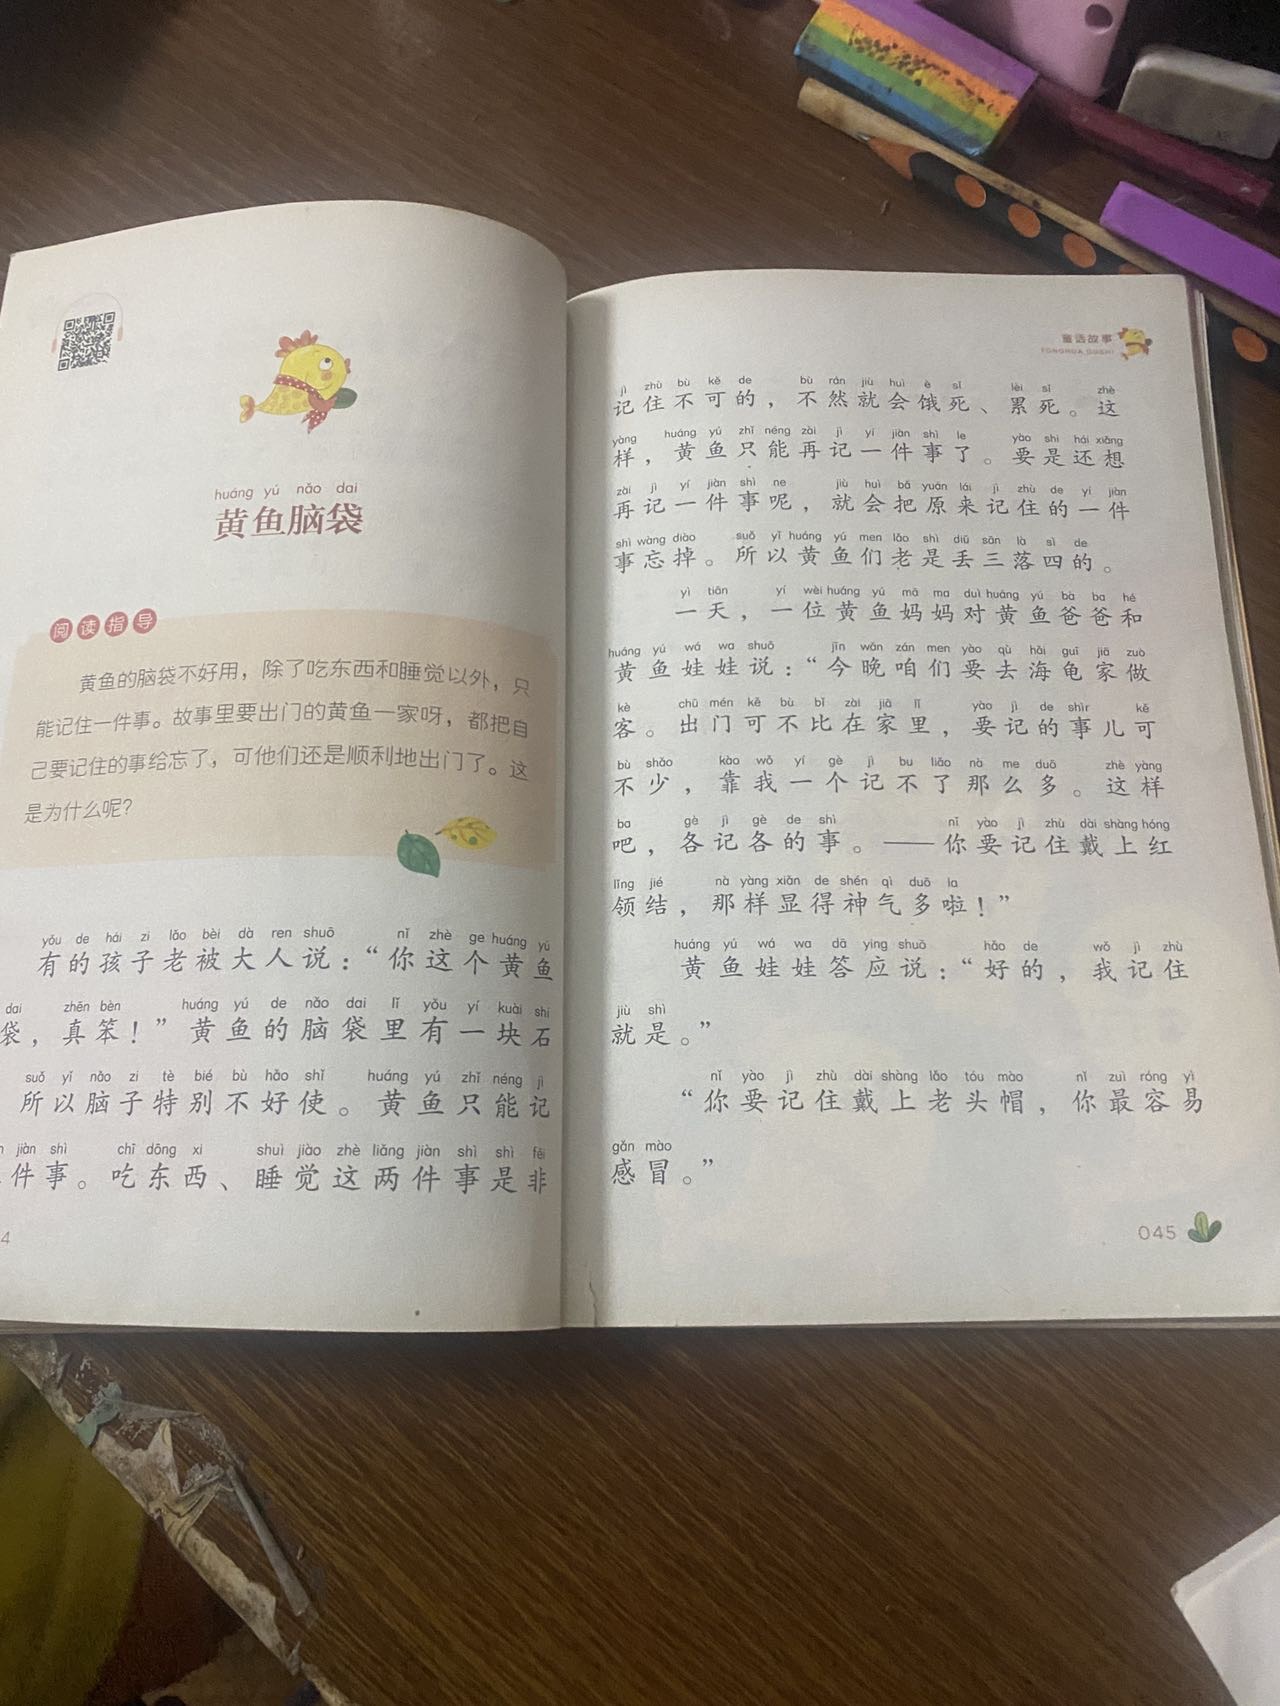 huáng yú nǎo dai
黄鱼脑袋
阅读指导
黄鱼的脑袋不好用，除了吃东西和睡觉以外，只
能记住一件事。故事里要出门的黄鱼一家呀，都把自
己要记住的事给忘了，可他们还是顺利地出门了。这
是为什么呢？
yǒu de hái zi lǎo bèi dà ren shuō nǐ zhè ge huáng yú
有的孩子老被大人说：“你这个黄鱼
dai zhēn bèn huáng yú de nǎo dai lǐ yǒu yí kuài shí
袋，真笨！”黄鱼的脑袋里有一块石
suǒ yǐ nǎo zi tè bié bù hǎo shǐ huáng yú zhǐ néng jì
所以脑子特别不好使。黄鱼只能记
jiàn shì chī dōng xi shuì jiào zhè liǎng jiàn shì shì fēi
件事。吃东西、睡觉这两件事是非
4
童话故事
TONGHUA GUSHI
jì zhù bù kě de bù rán jiù huì è sǐ lèi sǐ zhè
记住不可的，不然就会饿死、累死。这
yàng huáng yú zhǐ néng zài jì yí jiàn shì le yào shi hái xiǎng
样，黄鱼只能再记一件事了。要是还想
zài jì yí jiàn shì ne jiù huì bǎ yuán lái jì zhù de yí jiàn
再记一件事呢，就会把原来记住的一件
shì wàng diào suǒ yǐ huáng yú men lǎo shì diū sān là sì de
事忘掉。所以黄鱼们老是丢三落四的。
yì tiān yí wèi huáng yú mā ma duì huáng yú bà ba hé
一天，一位黄鱼妈妈对黄鱼爸爸和
huáng yú wá wa shuō jīn wǎn zán men yào qù hǎi guī jiā zuò
黄鱼娃娃说：“今晚咱们要去海龟家做
kè chū mén kě bù bǐ zài jiā lǐ yào jì de shìr kě
客。出门可不比在家里，要记的事儿可
bù shǎo kào wǒ yí gè jì bu liǎo nà me duō zhè yàng
不少，靠我一个记不了那么多。这样
ba gè jì gè de shì nǐ yào jì zhù dài shàng hóng
吧，各记各的事。——你要记住戴上红
lǐng jié nà yàng xiǎn de shén qì duō la
领结，那样显得神气多啦！”
huáng yú wá wa dā ying shuō hǎo de wǒ jì zhù
黄鱼娃娃答应说：“好的，我记住
jiù shì
就是。”
nǐ yào jì zhù dài shàng lǎo tóu mào nǐ zuì róng yì
“你要记住戴上老头帽，你最容易
gǎn mào
感冒。”
045